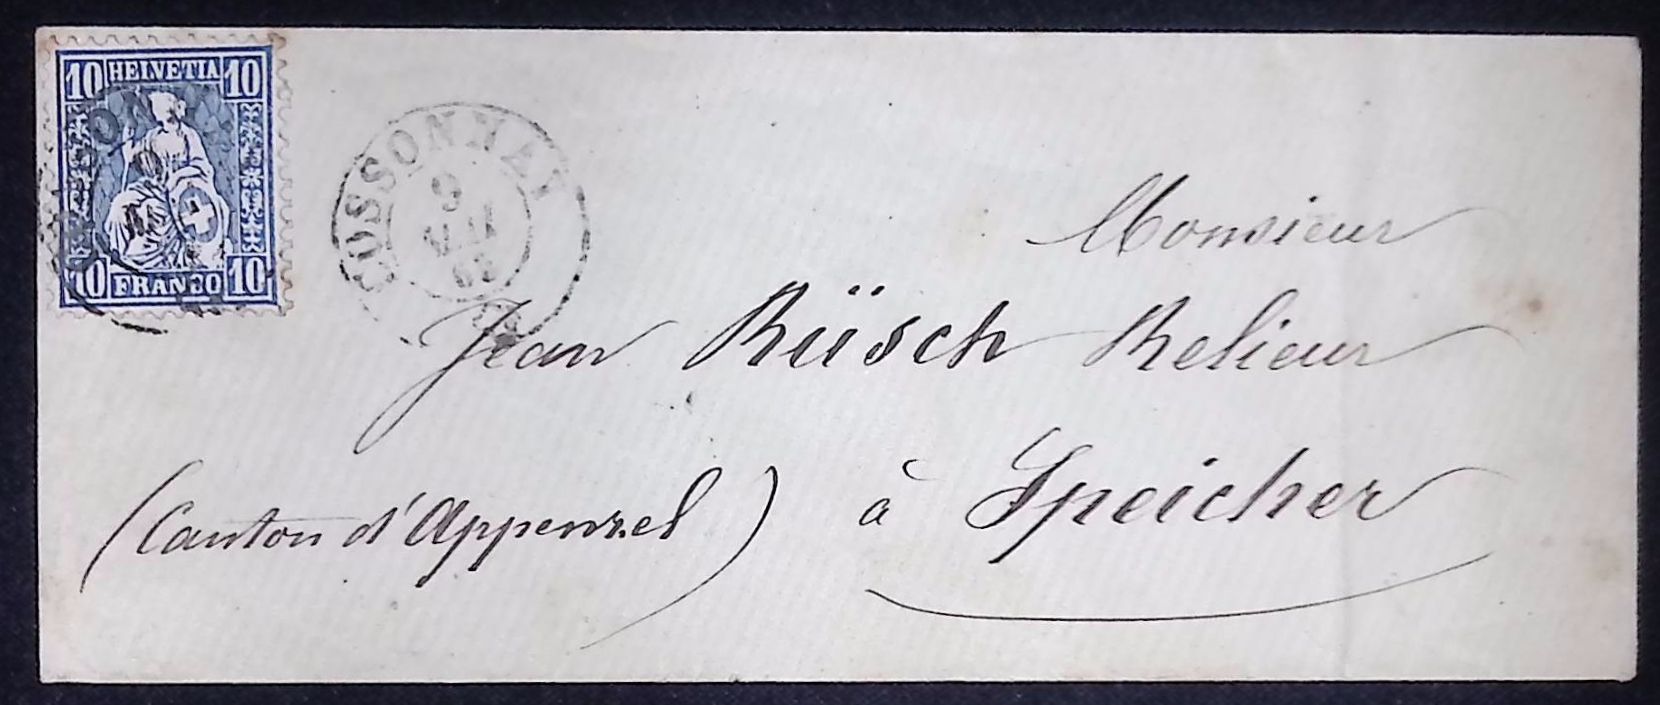 10 HELVETIA 10
10 FRANCO 10
COSSONAY
9
63
Monsieur
Jean Rüsch Relieur
à Speicher
(Canton d'Appenzel)